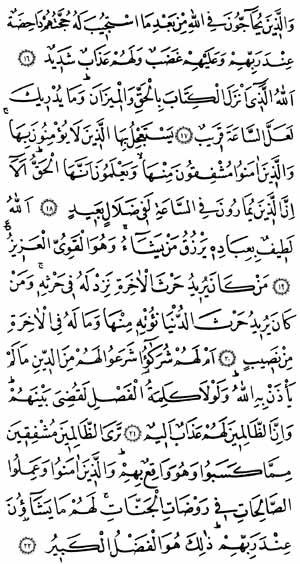 وَالَّذِينَ يُحَاجُّونَ فِي اللَّهِ مِنْ بَعْدِ مَا اسْتُجِيبَ لَهُ حُجَّتُهُمْ دَاحِضَةٌ
عِنْدَ رَبِّهِمْ وَعَلَيْهِمْ غَضَبٌ وَلَهُمْ عَذَابٌ شَدِيدٌ ﴿١٦﴾
اللَّهُ الَّذِي أَنْزَلَ الْكِتَابَ بِالْحَقِّ وَالْمِيزَانَ وَمَا يُدْرِيكَ
لَعَلَّ السَّاعَةَ قَرِيبٌ ﴿١٧﴾ يَسْتَعْجِلُ بِهَا الَّذِينَ لَا يُؤْمِنُونَ بِهَا
وَالَّذِينَ آمَنُوا مُشْفِقُونَ مِنْهَا وَيَعْلَمُونَ أَنَّهَا الْحَقُّ أَلَا
إِنَّ الَّذِينَ يُمَارُونَ فِي السَّاعَةِ لَفِي ضَلَالٍ بَعِيدٍ ﴿١٨﴾ اللَّهُ
لَطِيفٌ بِعِبَادِهِ يَرْزُقُ مَنْ يَشَاءُ وَهُوَ الْقَوِيُّ الْعَزِيزُ
﴿١٩﴾ مَنْ كَانَ يُرِيدُ حَرْثَ الْآخِرَةِ نَزِدْ لَهُ فِي حَرْثِهِ وَمَنْ
كَانَ يُرِيدُ حَرْثَ الدُّنْيَا نُؤْتِهِ مِنْهَا وَمَا لَهُ فِي الْآخِرَةِ
مِنْ نَصِيبٍ ﴿٢٠﴾ أَمْ لَهُمْ شُرَكَاءُ شَرَعُوا لَهُمْ مِنَ الدِّينِ مَا لَمْ
يَأْذَنْ بِهِ اللَّهُ وَلَوْلَا كَلِمَةُ الْفَصْلِ لَقُضِيَ بَيْنَهُمْ
وَإِنَّ الظَّالِمِينَ لَهُمْ عَذَابٌ أَلِيمٌ ﴿٢١﴾ تَرَى الظَّالِمِينَ مُشْفِقِينَ
مِمَّا كَسَبُوا وَهُوَ وَاقِعٌ بِهِمْ وَالَّذِينَ آمَنُوا وَعَمِلُوا
الصَّالِحَاتِ فِي رَوْضَاتِ الْجَنَّاتِ لَهُمْ مَا يَشَاؤُنَ
عِنْدَ رَبِّهِمْ ذَلِكَ هُوَ الْفَضْلُ الْكَبِيرُ ﴿٢٢﴾